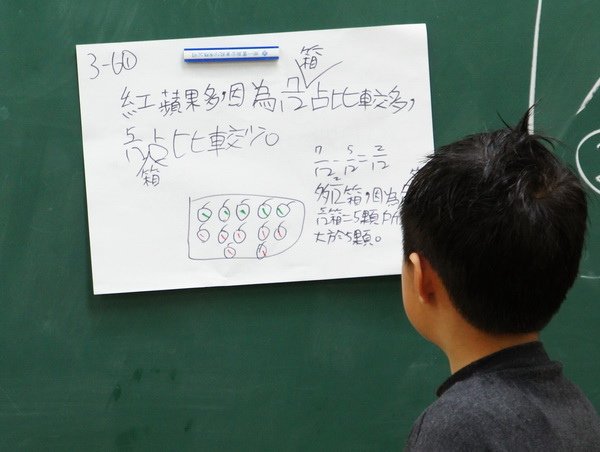 3-6①
箱
紅蘋果多,因為7/12占比較多,
5/12占比較少。
箱
7/12-5/12=2/12
多2/12箱,因為
5/12箱=5顆
大於5顆。